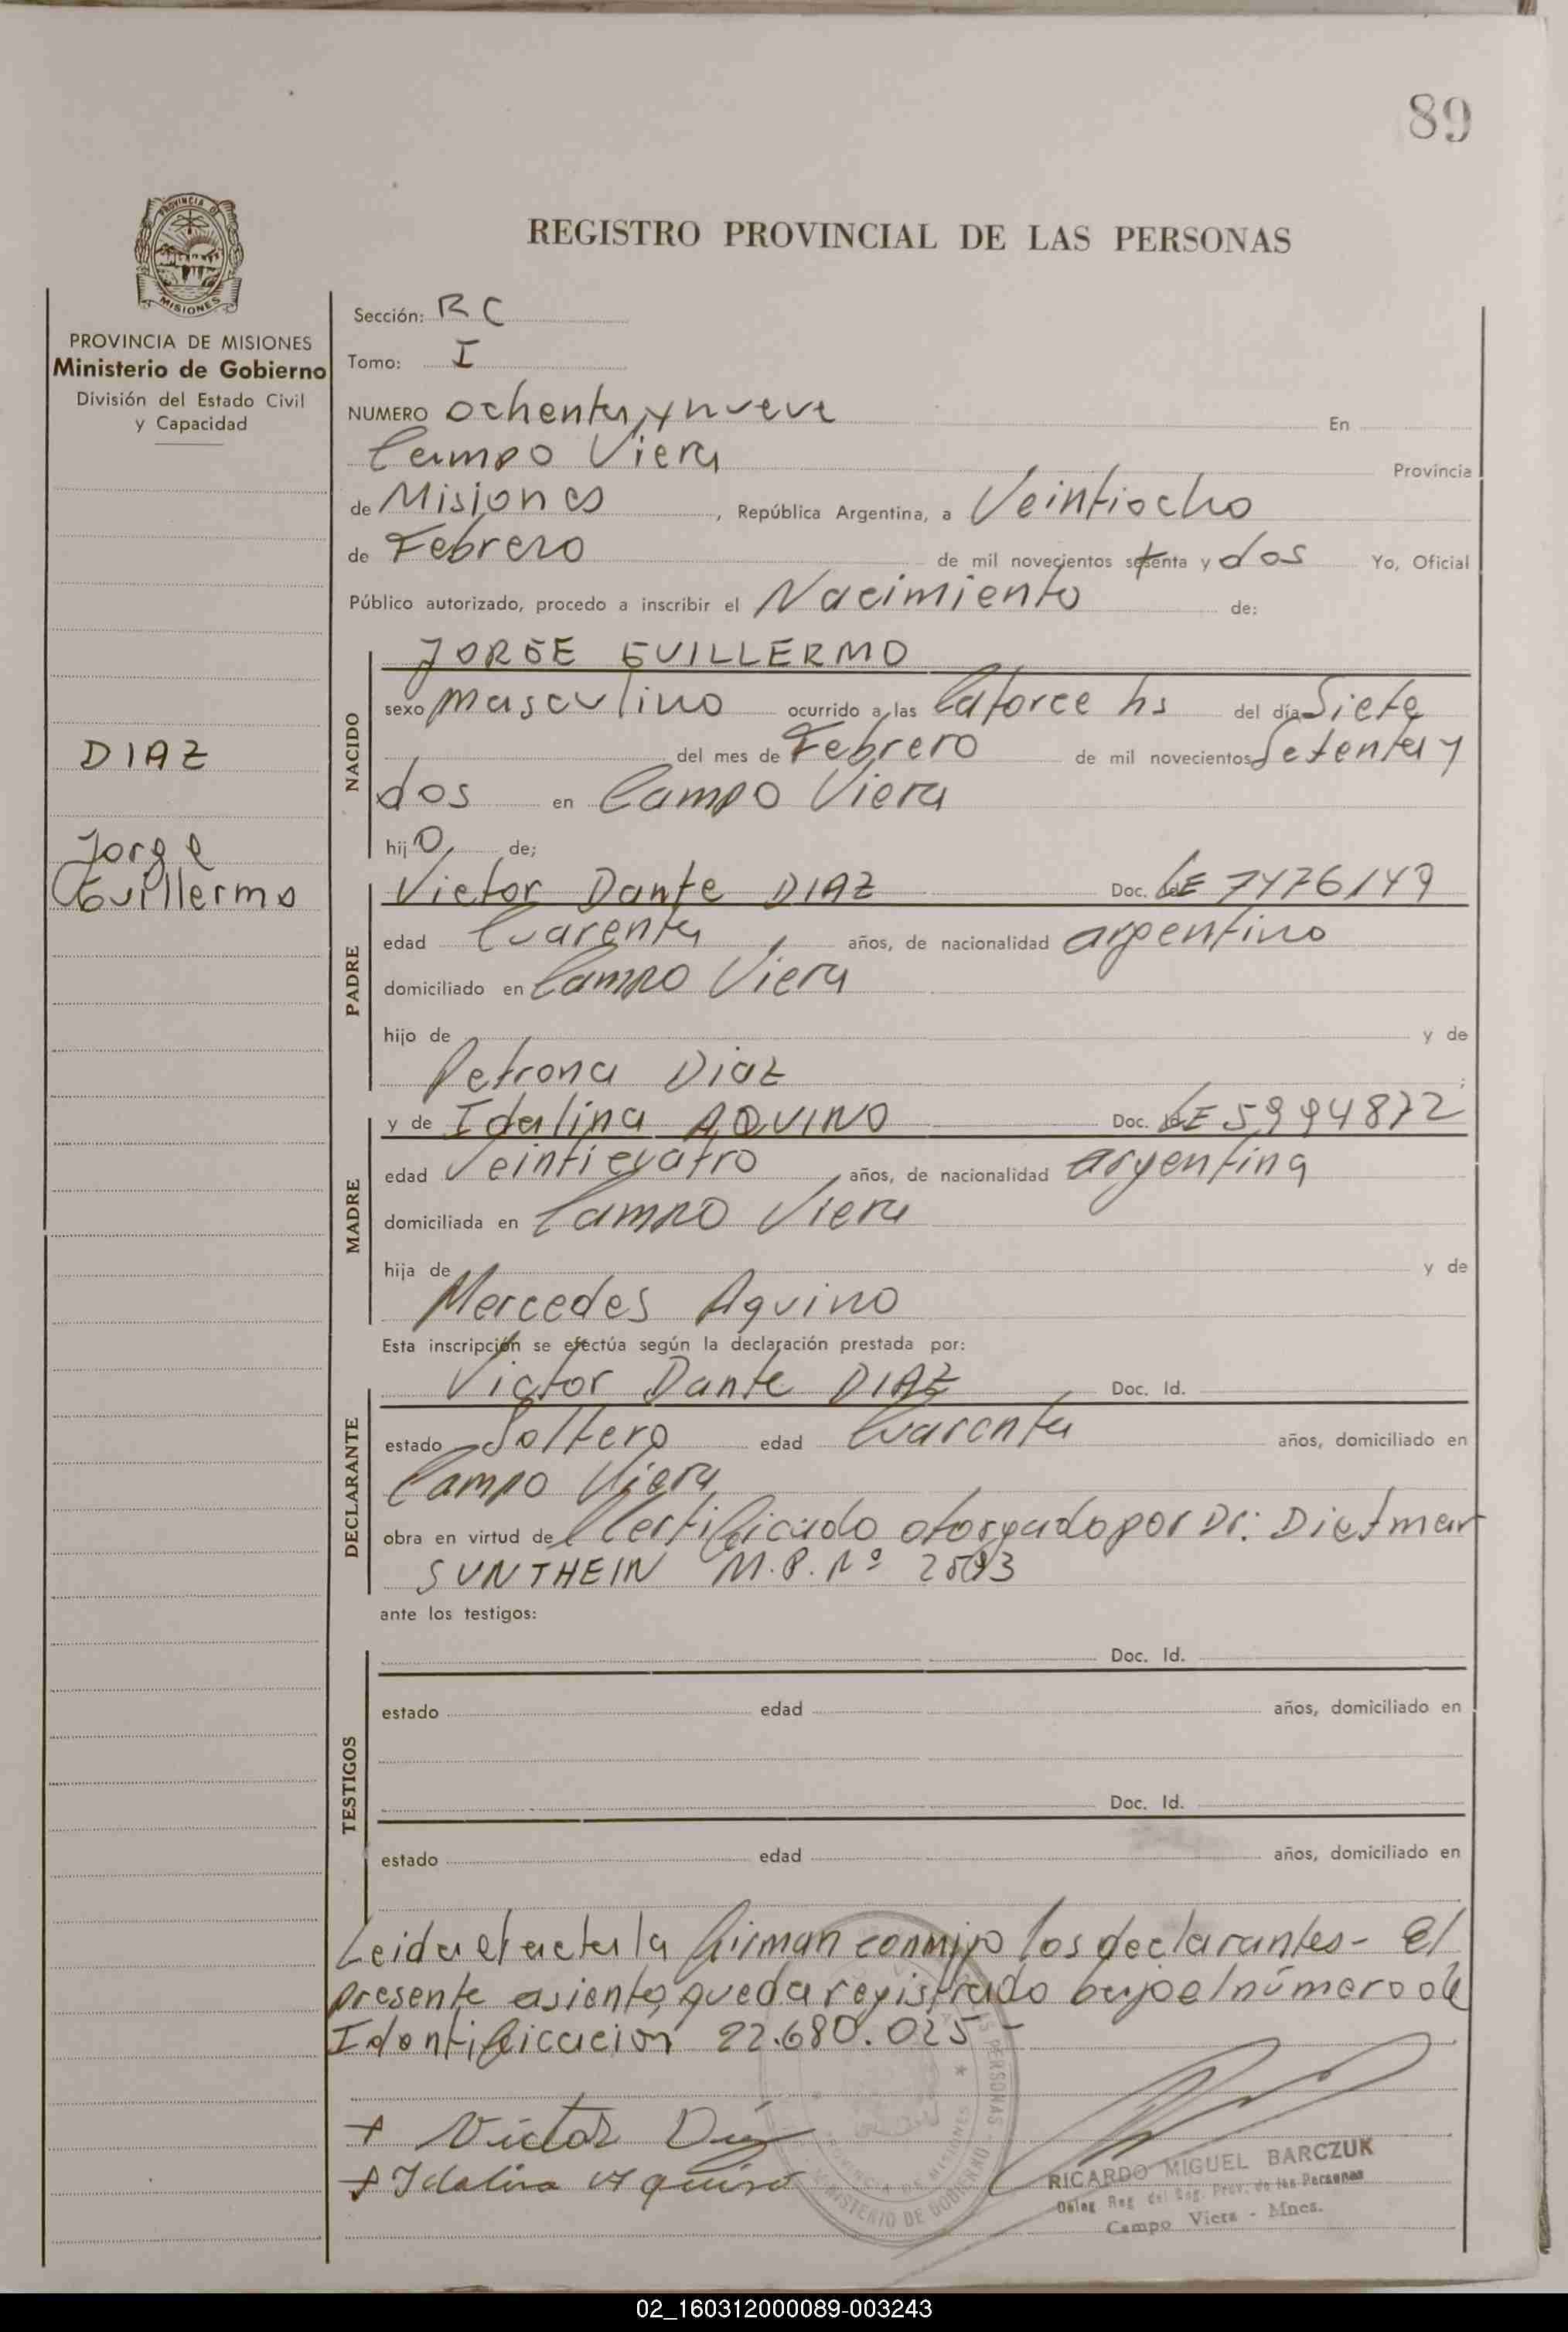 89
PROVINCIA DE
MISIONES
PROVINCIA DE MISIONES
Ministerio de Gobierno
División del Estado Civil
y Capacidad
DIAZ
Jorge
Guillermo
REGISTRO PROVINCIAL DE LAS PERSONAS
Sección: RC
Tomo: I
NUMERO ochenta y nueve En
Campo Viera Provincia
de Misiones, República Argentina, a Veintiocho
de Febrero de mil novecientos setenta y dos Yo, Oficial
Público autorizado, procedo a inscribir el Nacimiento de:
NACIDO
JORGE GUILLERMO
sexo masculino ocurrido a las Catorce hs del día Siete
del mes de Febrero de mil novecientos Setenta y
dos en Campo Viera
hijo de;
PADRE
Victor Dante DIAZ Doc. LE 7476149
edad Cuarenta años, de nacionalidad argentino
domiciliado en Campo Viera
hijo de y de
Petrona Diaz ;
MADRE
y de Idalina AQUINO Doc. LE 5994872
edad Veinticuatro años, de nacionalidad argentina
domiciliada en Campo Viera
hija de y de
Mercedes Aquino
Esta inscripción se efectúa según la declaración prestada por:
DECLARANTE
Victor Dante DIAZ Doc. Id.
estado Soltero edad Cuarenta años, domiciliado en
Campo Viera
obra en virtud de Certificado otorgado por Dr: Dietmar
SUNTHEIN M.P. Nº
ante los testigos:
TESTIGOS
Doc. Id.
estado edad años, domiciliado en
Doc. Id.
estado edad años, domiciliado en
Leida el acta la firman conmigo los declarantes - El
presente asiento queda registrado bajo el número de
Identificación 22.680.025 -
+ Victor Diaz
+ Idalina Aquino
PERSONAS
PROVINCIA DE MISIONES
MINISTERIO DE GOBIERNO
RICARDO MIGUEL BARCZUK
Deleg Reg del Reg. Prov. de las Personas
Campo Viera - Mnes.
02_160312000089-003243